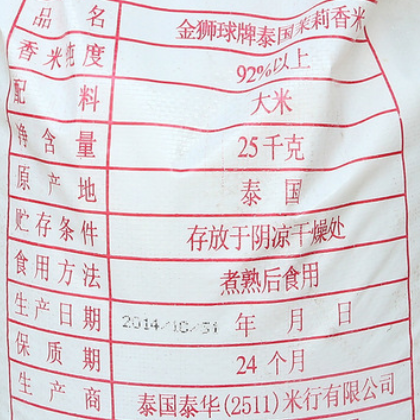 品名 金狮球牌泰国茉莉香米
香米纯度 92%以上
配料 大米
净含量 25千克
原产地 泰国
贮存条件 存放于阴凉干燥处
食用方法 煮熟后食用
生产日期 2014/10/31 年 月 日
保质期 24个月
生产商 泰国泰华(2511)米行有限公司